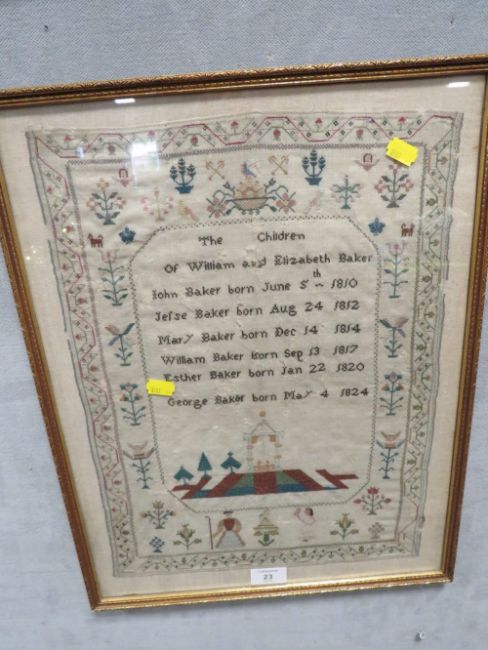 The Children
Of William and Elizabeth Baker
John Baker born June 5th 1810
Jesse Baker born Aug 24 1812
Mary Baker born Dec 14 1814
William Baker Born Sep 13 1817
Esther Baker born Jan 22 1820
George Baker born May 4 1824
23